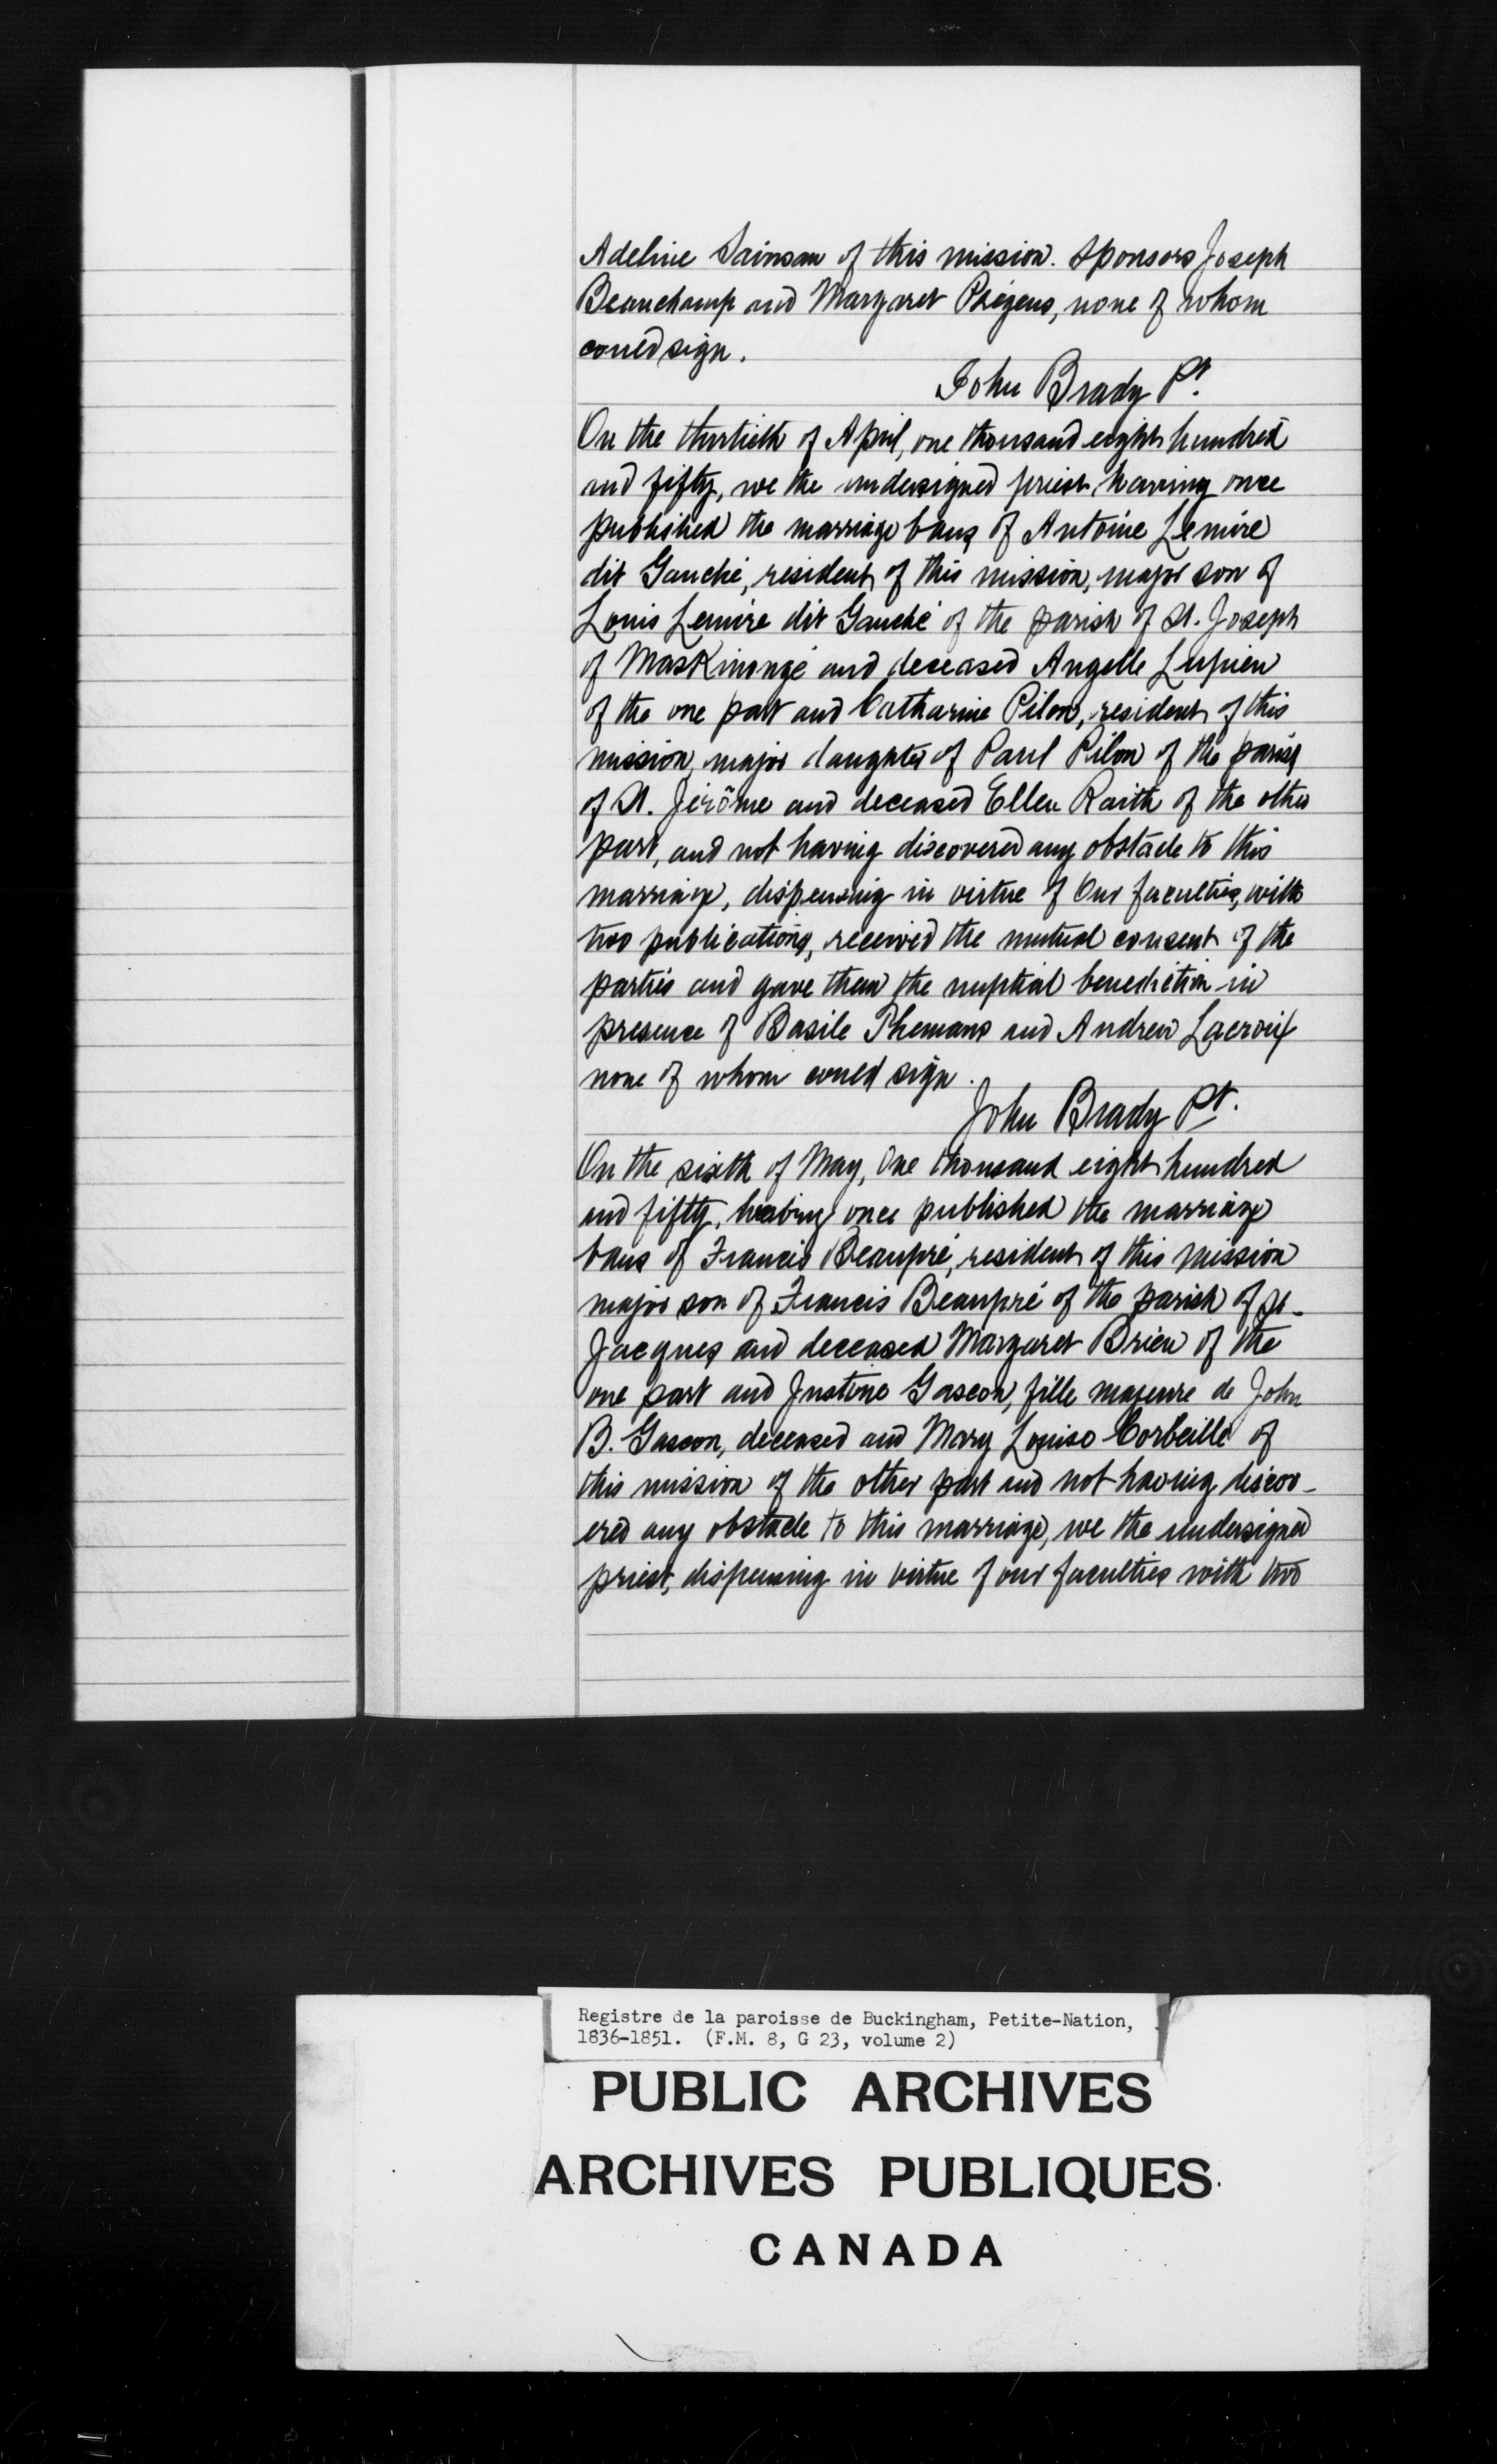 Adeline Sainsan of this mission. Sponsors Joseph
Beauchamp and Margaret Prégens, none of whom
could sign.
John Brady Pt.
On the thirtieth of April, one thousand eight hundred
and fifty, we the undersigned priest having once
published the marriage bans of Antoine Lemire
dit Gauché, resident of this mission, major son of
Louis Lemire dit Gauché of the parish of St. Joseph
of Maskinongé and deceased Angelle Lupien
of the one part and Catharine Pilon, resident of this
mission, major daughter of Paul Pilon of the parish
of St. Jérôme and deceased Ellen Raith of the other
part, and not having discovered any obstacle to this
marriage, dispensing in virtue of Our faculties, with
two publications, received the mutual consent of the
parties and gave them the nuptial benediction in
presence of Basile Themans and Andrew Lacroix
none of whom could sign.
John Brady Pt.
On the sixth of May, One thousand eight hundred
and fifty, having once published the marriage
bans of Francis Beaupré, resident of this mission
major son of Francis Beaupré of the parish of St-
Jacques and deceased Margaret Brien of the
one part and Justine Gascon, fille majeure de John
B. Gascon, deceased and Mary Louise Corbeille of
this mission of the other part and not having discov-
ered any obstacle to this marriage, we the undersigned
priest, dispensing in virtue of our faculties with two
Registre de la paroisse de Buckingham, Petite-Nation,
1836-1851. (F.M. 8, G 23, volume 2)
PUBLIC ARCHIVES
ARCHIVES PUBLIQUES
CANADA